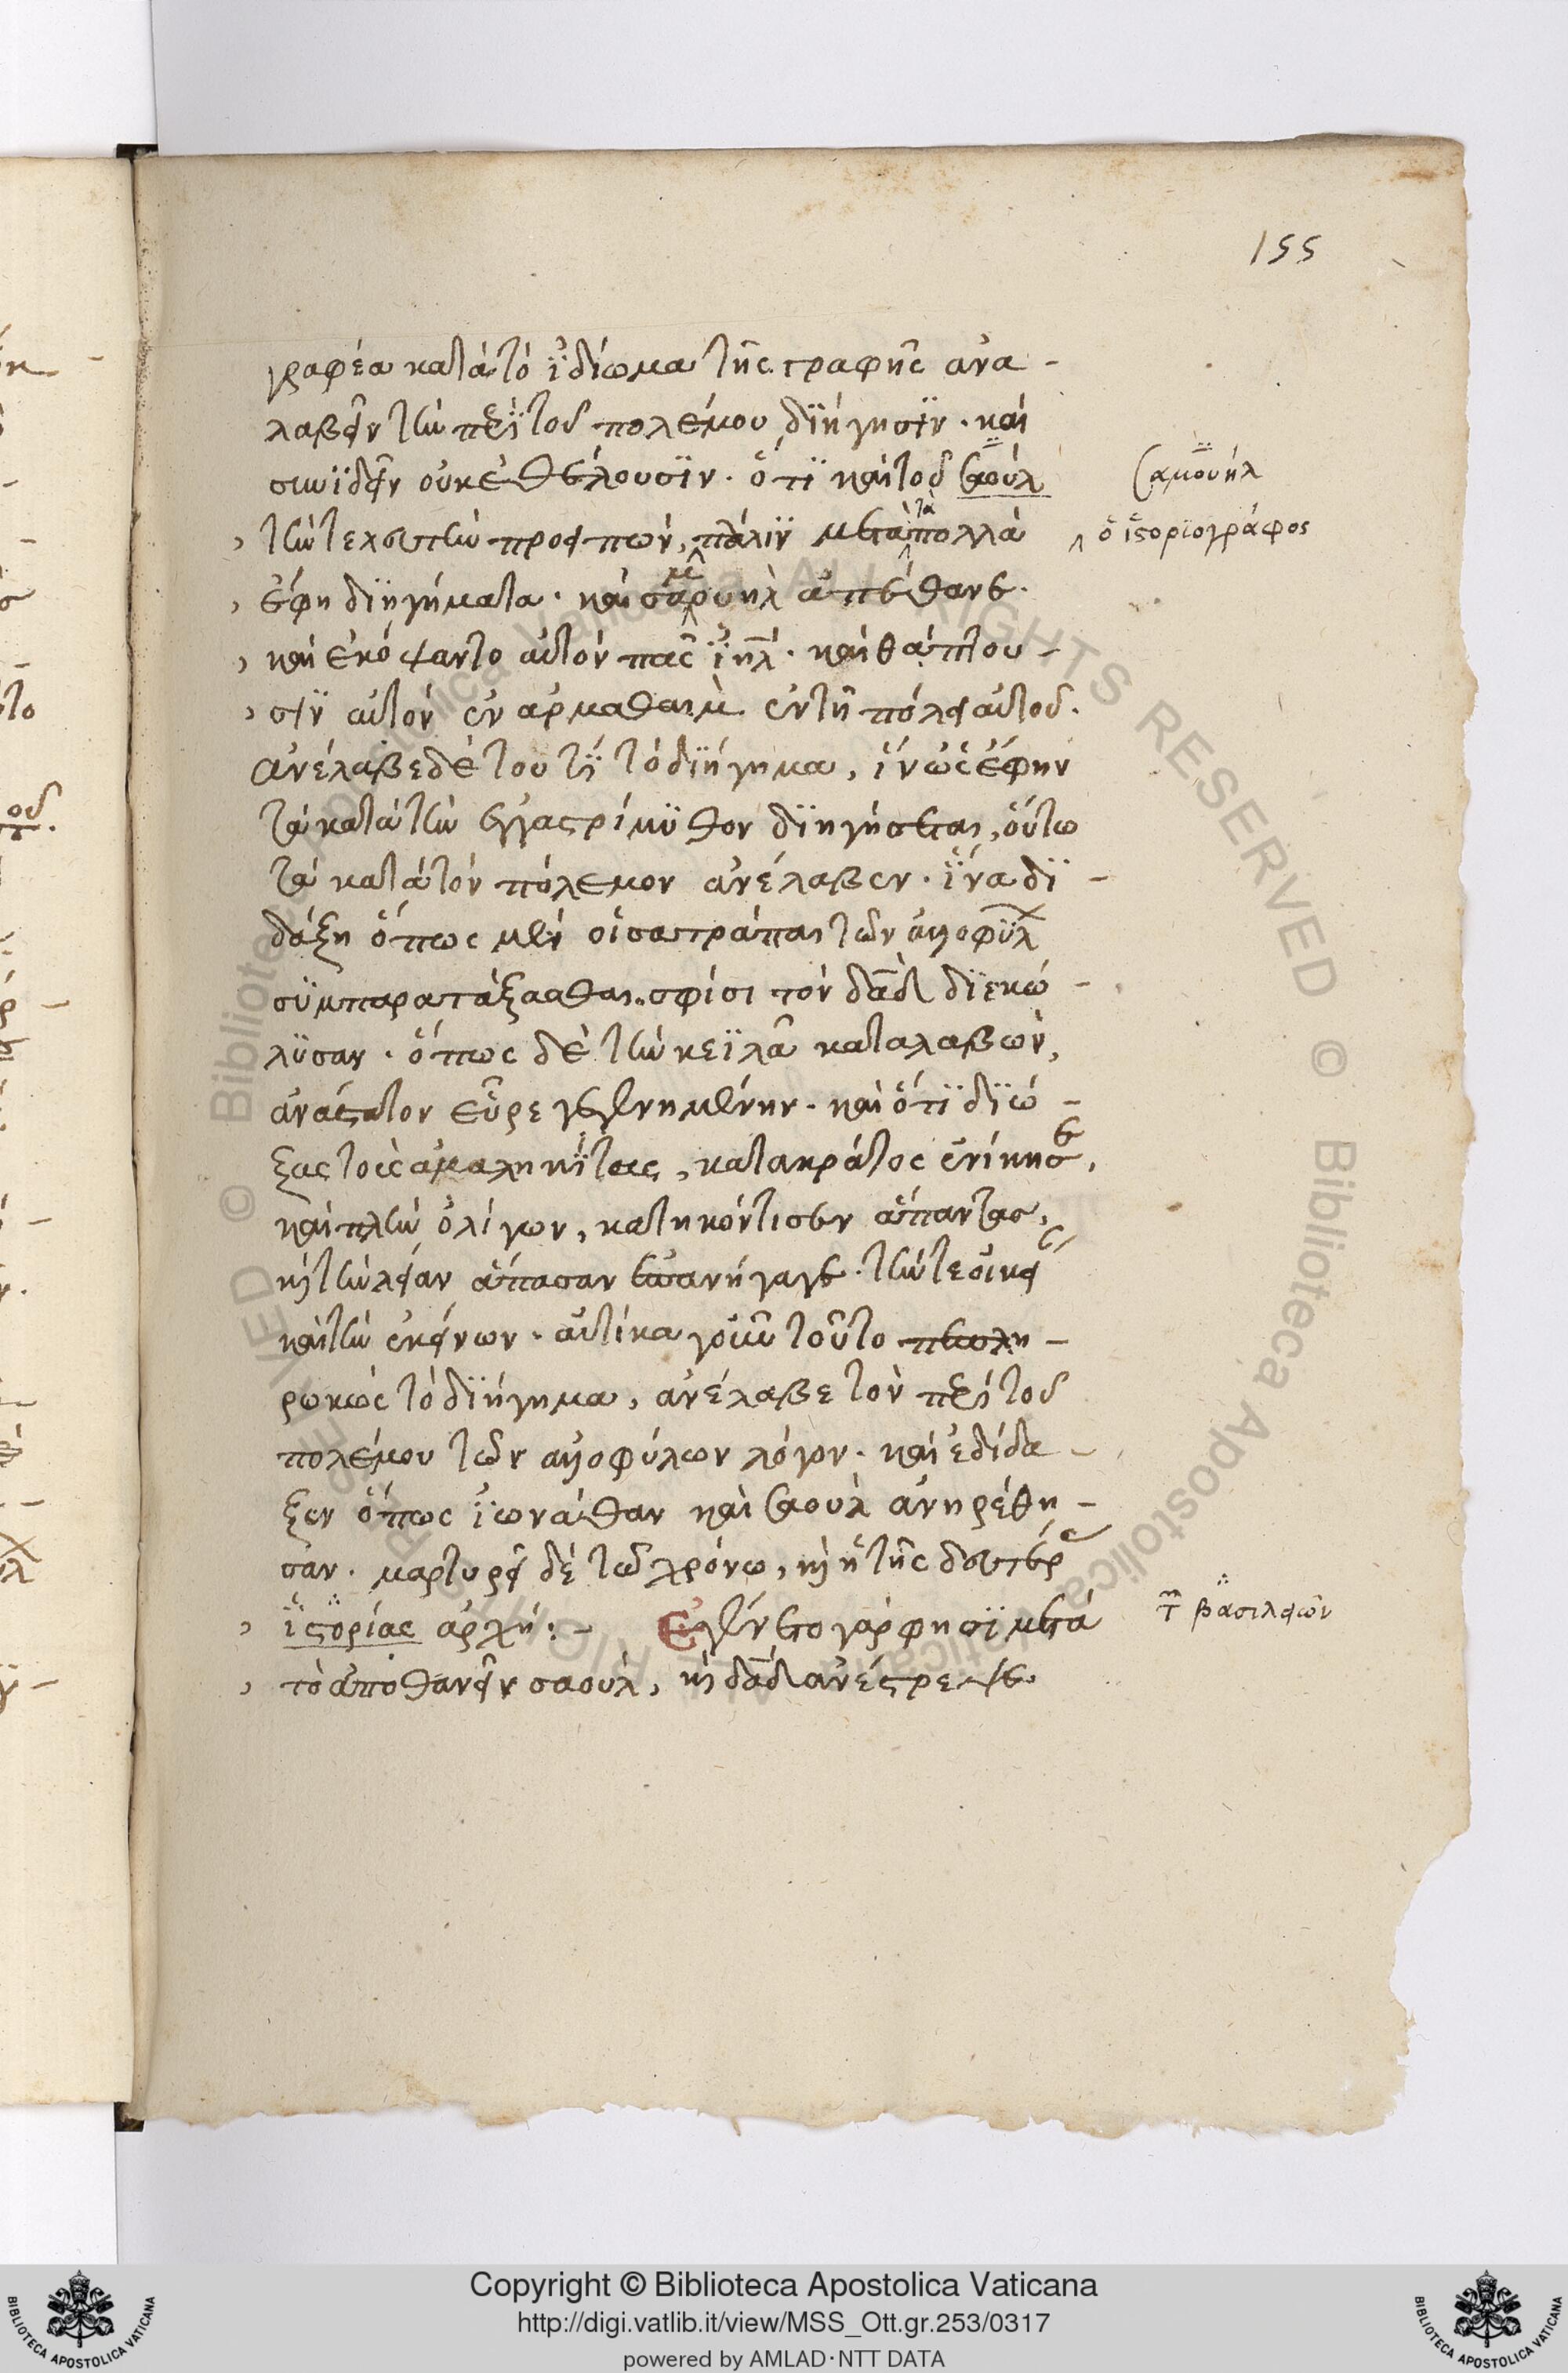 155
γραφέα κατὰ τὸ ἰδίωμα τῆς γραφῆς ἀνα -
λαβεῖν τὴν περὶ τοῦ πολέμου διήγησιν . καὶ
συνιδεῖν οὐκ ἐθέλουσιν . ὅτι καὶ τοῦ σαοὺλ
σαμουὴλ
, τὴν τελευτὴν προειπών, πάλιν μετὰ τὰ πολλὰ
ὁ ἱστοριογράφος
, ἔφη διηγήματα . καὶ σαμουηλ ἀπέθανε .
, καὶ ἐκόψαντο αὐτὸν πᾶς ιηλ . καὶ θάπτου -
, σιν αὐτὸν ἐν αρμαθαιμ ἐν τῇ πόλει αὐτοῦ .
ἀνέλαβε δὲ τουτὶ τὸ διήγημα , ἵν ὡς ἔφην
τὰ κατὰ τὴν ἐγγαστρίμυθον διηγήσεται , οὕτω
τὰ κατὰ τὸν πόλεμον ἀνέλαβεν . ἵνα δι -
δάξη ὅπως μὲν οἱ σατράπαι τῶν ἀλλοφύλ
συμπαρατάξασθαι σφίσι τὸν δαδ διεκώ -
λυσαν . ὅπως δὲ τὴν κεϊλὰ καταλαβὼν ,
ἀνάστατον εὗρε γεγενημένην . καὶ ὅτι διώ -
ξας τοὺς ἀμαληκίτας , κατακράτος ἐνίκησε ,
καὶ πλὴν ὀλίγων , κατηκόντισεν ἅπαντας ,
κὶ τὴν λείαν ἅπασαν ἐπανήγαγε . τήν τε οἰκεί
καὶ τὴν ἐκείνων . αὐτίκα γοῦν τοῦτο πεπλη -
ρωκὼς τὸ διήγημα , ἀνέλαβε τὸν περὶ τοῦ
πολέμου τῶν ἀλλοφύλων λόγον . καὶ ἐδίδα -
ξεν ὅπως ἰωνάθαν καὶ σαοὺλ ἀνηρέθη -
σαν . μαρτυρεῖ δὲ τῶ χρόνω , κὶ ἡ τῆς δευτέρας
, ἱστορίας ἀρχή : - Ἐγένετο γάρ φησι μετὰ
τ βασιλειῶν
, τὸ ἀποθανεῖν σαούλ , κὶ δαδ ἀνέστρεψε
Copyright © Biblioteca Apostolica Vaticana
http://digi.vatlib.it/view/MSS_Ott.gr.253/0317
powered by AMLAD·NTT DATA